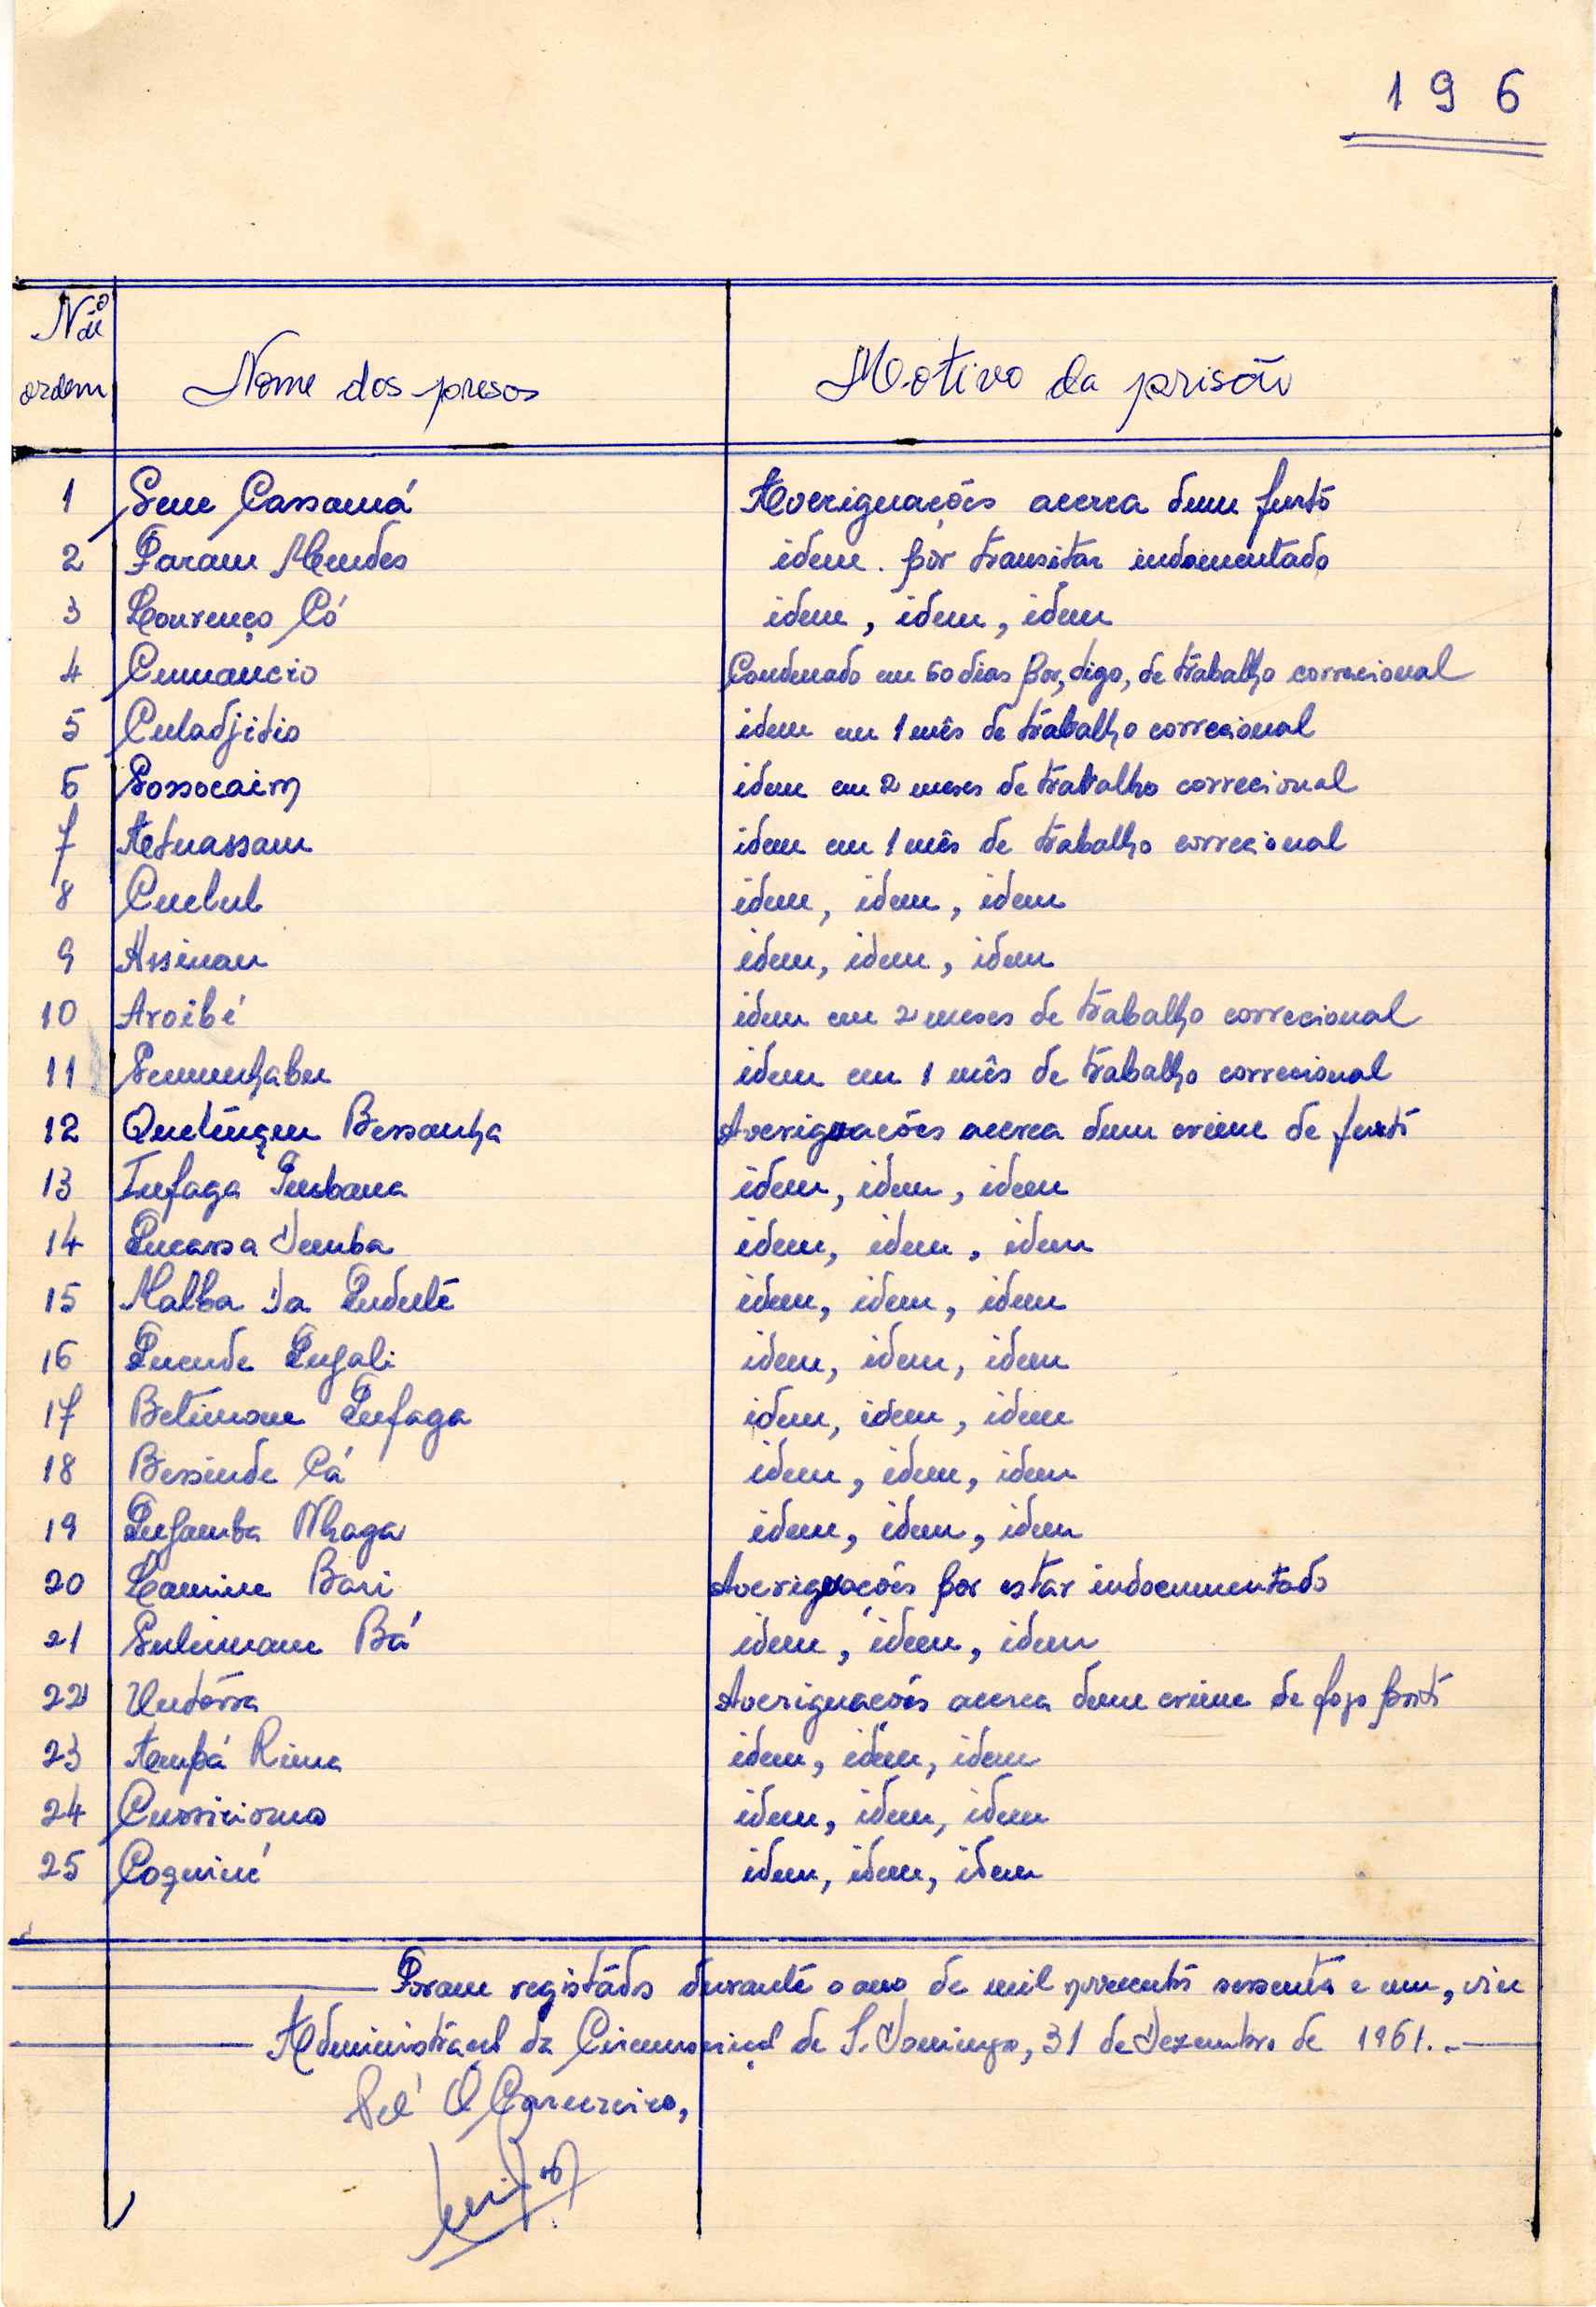 1 9 6
Nº de ordem
Nome dos presos
Motivo da prisão
1 Sene Cassamá Averiguações acerca dum furto
2 Faram Mendes idem. por transitar indomentado
3 Lourenço Có idem, idem, idem
4 Cumancio Condenado em 60 dias por, digo, de trabalho correcional
5 Culadjidio idem em 1 mês de trabalho correcional
6 Sossocaim idem em 2 meses de trabalho correcional
7 idem em 1 mês de trabalho correcional
8 idem, idem, idem
9 Assinau idem, idem, idem
10 Aroibé idem em 2 meses de trabalho correcional
11 idem em 1 mês de trabalho correcional
12 Bessanha Averiguações acerca dum crime de furto
13 Infaga idem, idem, idem
14 idem, idem, idem
15 Malba da idem, idem, idem
16 idem, idem, idem
17 idem, idem, idem
18 Bessinde Cá idem, idem, idem
19 Nhaga idem, idem, idem
20 Lamine Bari Averiguações por estar indocumentado
21 Suleimane Bá idem, idem, idem
22 Averiguações acerca dum crime de fogo posto
23 Ampá idem, idem, idem
24 idem, idem, idem
25 Coquiné idem, idem, idem
Foram registados durante o ano de mil novecentos sessenta e um,
Administração da Circunscrição de S. Domingos, 31 de Dezembro de 1961.-
O Carcereiro,